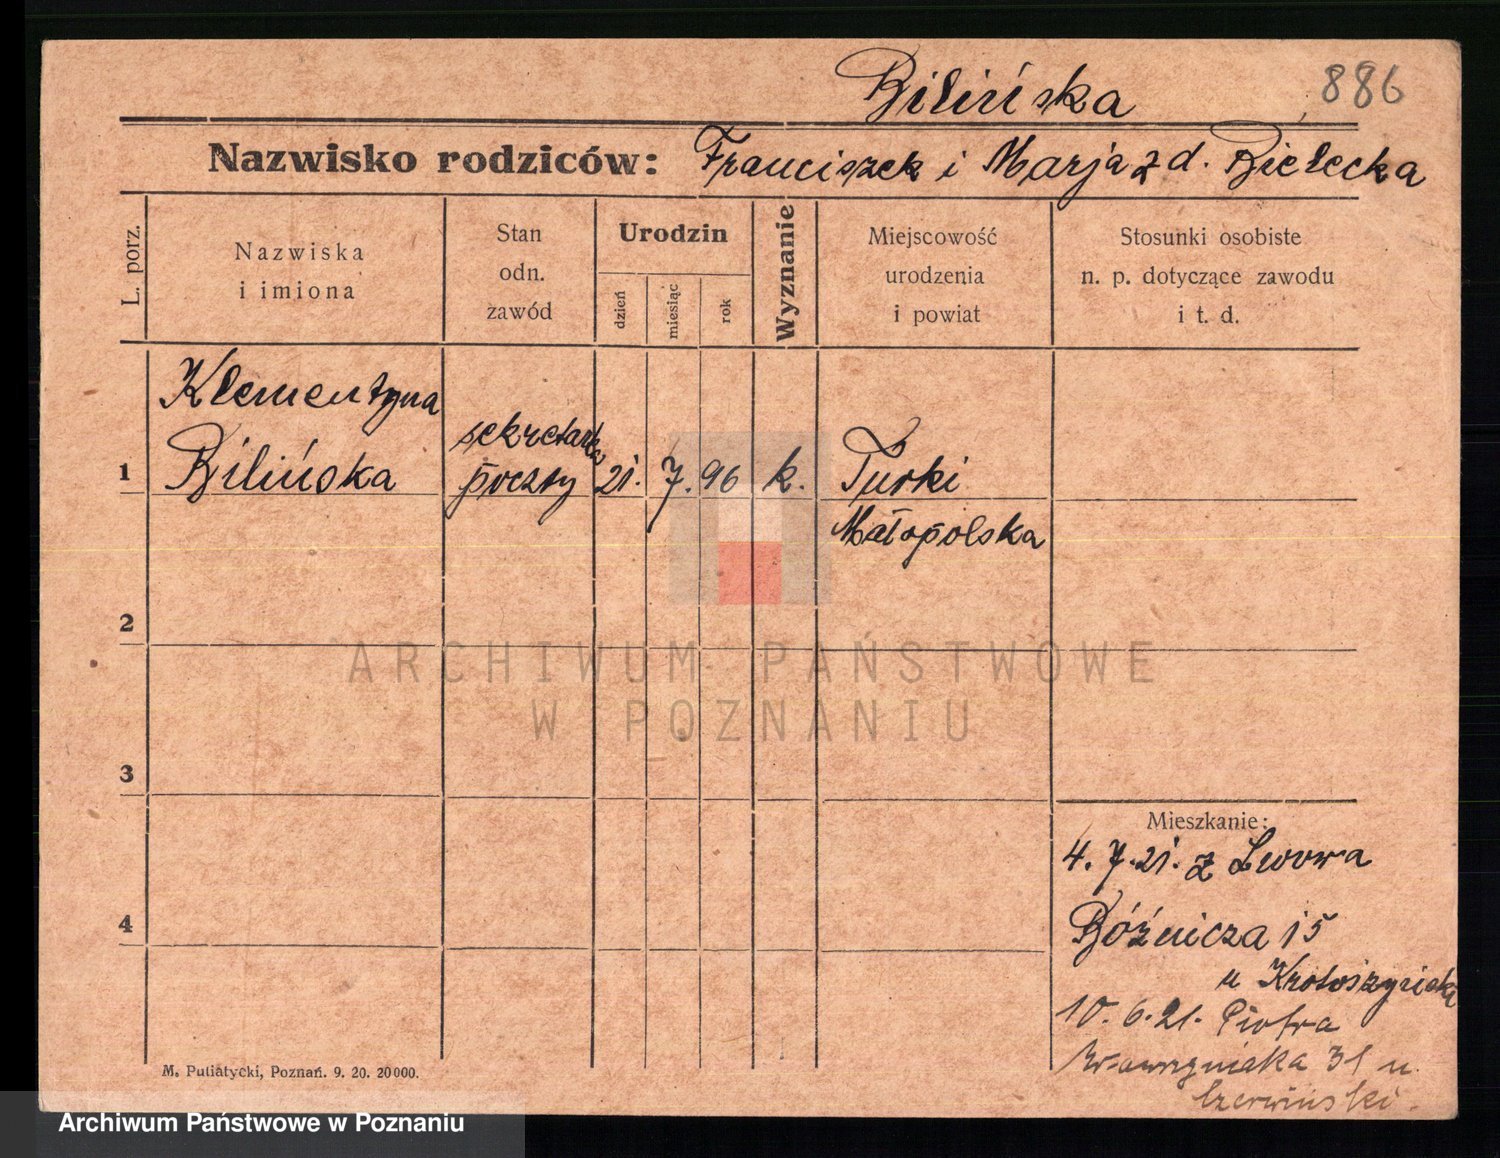 Bilińska
886
Nazwisko rodziców: Franciszek i Marja z d. Bielecka
L. porz.
Nazwiska
i imiona
Stan
odn.
zawód
Urodzin
dzień
miesiąc
rok
Wyznanie
Miejscowość
urodzenia
i powiat
Stosunki osobiste
n. p. dotyczące zawodu
i t. d.
1
Klementyna
Bilińska
sekretarka
poczty
21.
7.
96
k.
Turki
Małopolska
2
3
4
Mieszkanie:
4.7.21. z Lwowa
Bóźnicza 15
u Krotoszyńska
10.6.21. Piotra
Wawrzyniaka 31 u
Czerwiński.
M. Putiatycki, Poznań. 9. 20. 20000.
ARCHIWUM PAŃSTWOWE
W POZNANIU
Archiwum Państwowe w Poznaniu